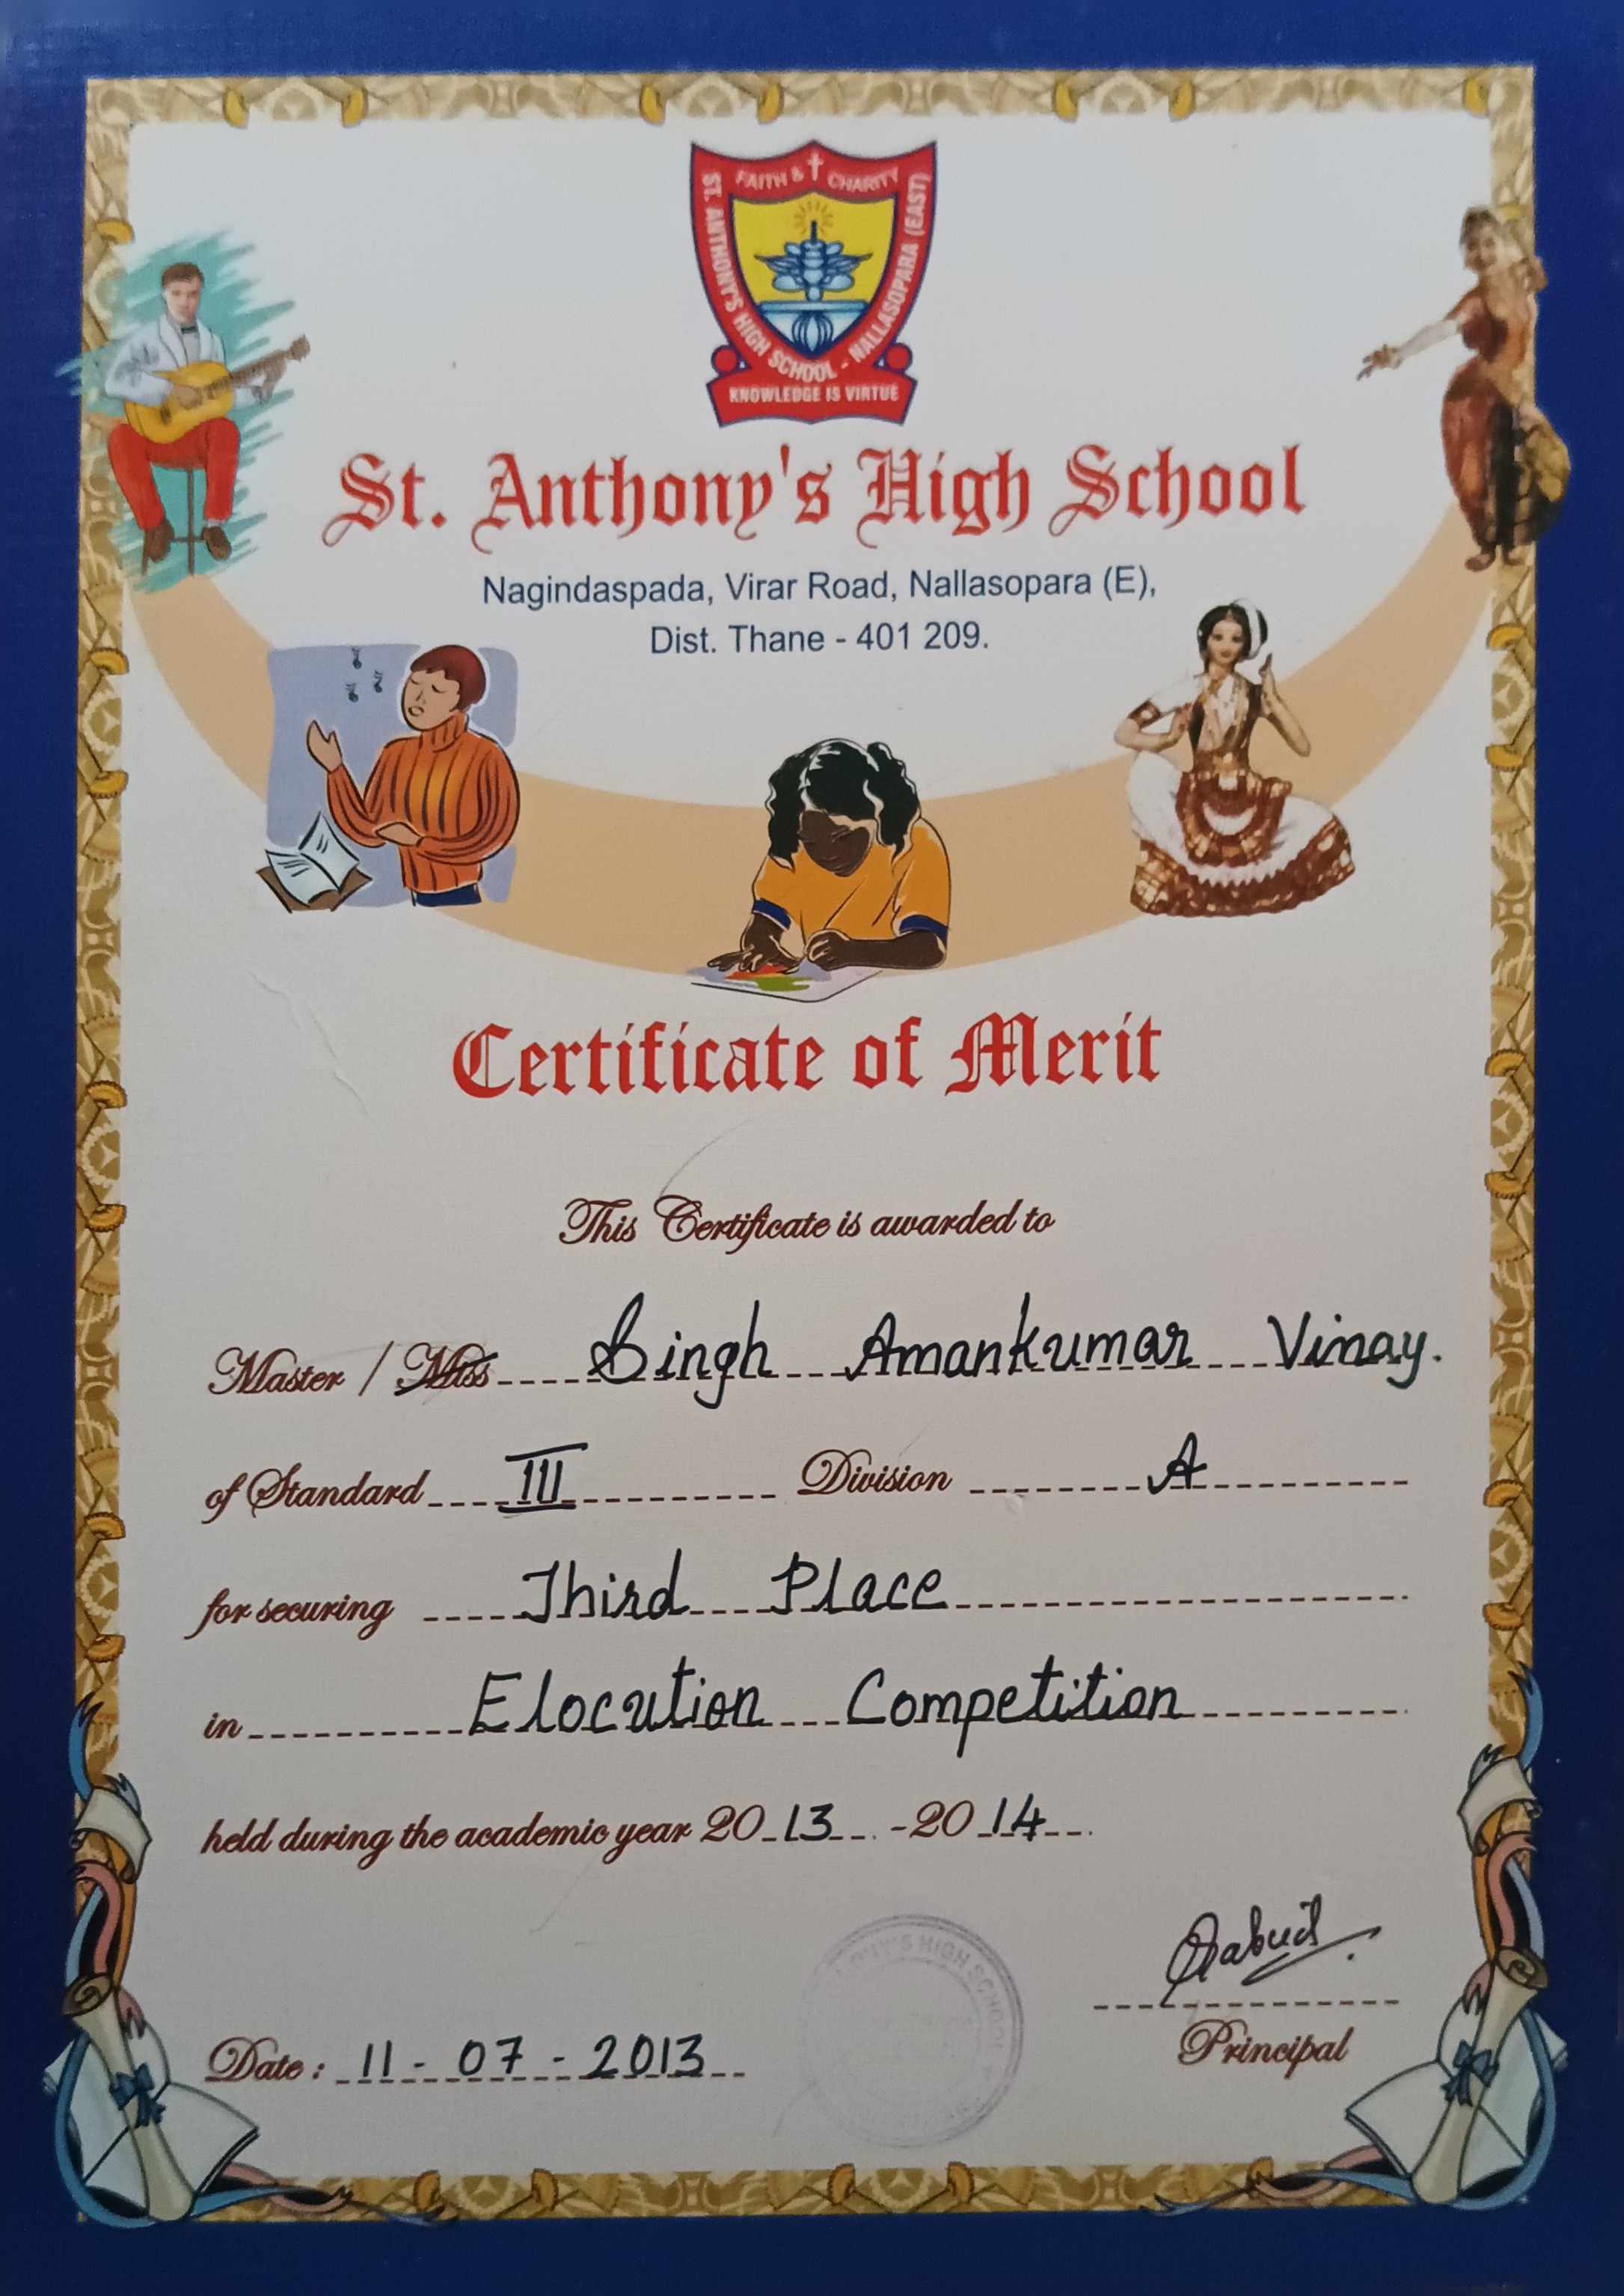 FAITH & CHARITY
ST. ANTHONY'S HIGH SCHOOL - NALLASOPARA (EAST)
KNOWLEDGE IS VIRTUE
St. Anthony's High School
Nagindaspada, Virar Road, Nallasopara (E),
Dist. Thane - 401 209.
Certificate of Merit
This Certificate is awarded to
Master / Miss Singh Amankumar Vinay.
of Standard III Division A
for securing Third Place
in Elocution Competition
held during the academic year 2013 - 2014
ONY'S HIGH SCHOOL
Date : 11 - 07 - 2013
Principal